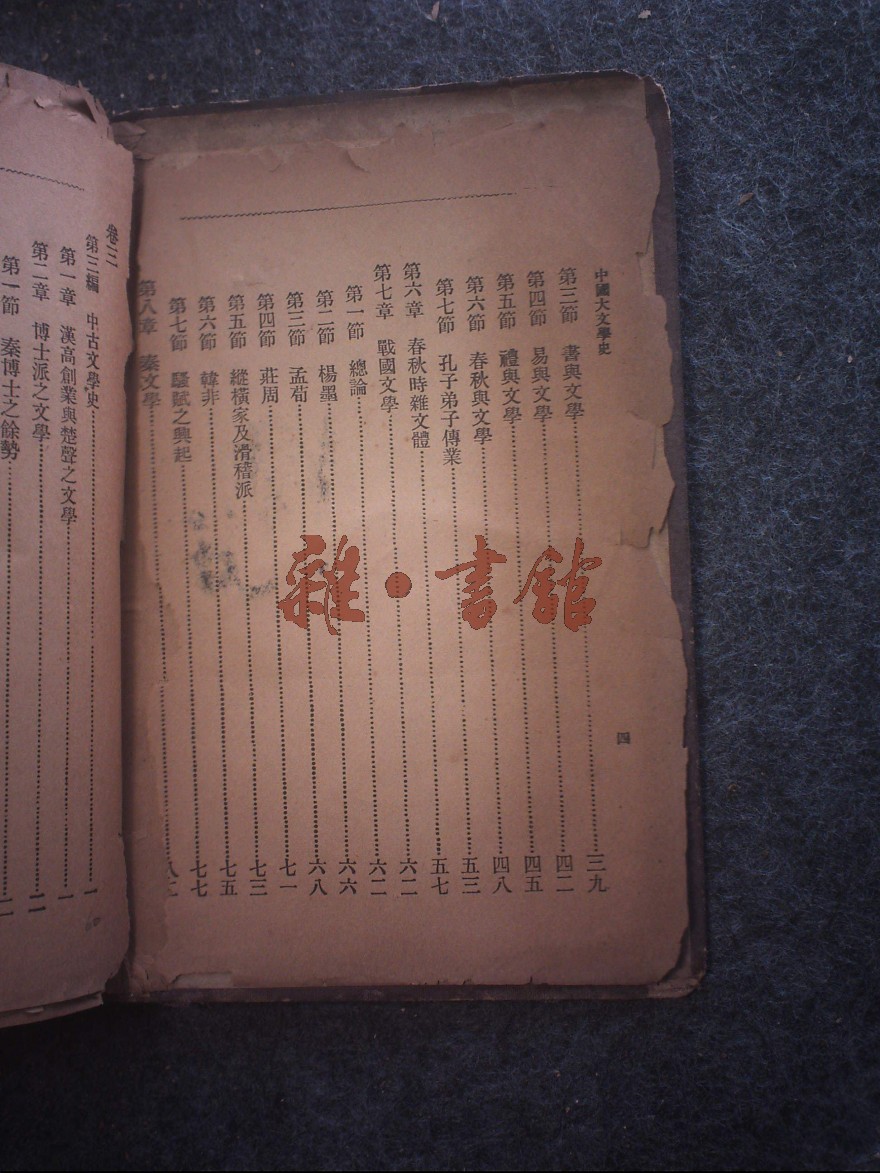 中國大文學史
四
第三節 書與文學……三九
第四節 易與文學……四二
第五節 禮與文學……四五
第六節 春秋與文學……四八
第七節 孔子弟子傳業……五三
第六章 春秋時雜文體……五七
第七章 戰國文學……六二
第一節 總論……六二
第二節 楊墨……六六
第三節 孟荀……六八
第四節 莊周……七一
第五節 縱橫家及滑稽派……七三
第六節 韓非……七五
第七節 騷賦之興起……七七
第八章 秦文學……
卷三
第三編 中古文學史……一
第一章 漢高創業與楚聲之文學……一
第二章 博士派之文學……二
第一節 秦博士之餘勢……二
雜·書館